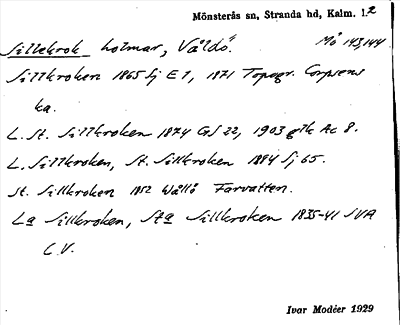 Mönsterås sn, Stranda hd, Kalm. l. 2
Sillekrok holmar, Våldö. Mö 143,144
Sillkroken 1865 Sj E 1, 1871 Topogr. Corpsens
ka.
L. St. Sillkroken 1874 GS 22, 1903 gtk Ac 8.
L. Sillkroken, St. Sillkroken 1884 Sj 65.
St. Sillkroken 1852 Wållö Farvatten.
La Sillkroken, Sta Sillkroken 1835-41 SVA
L.V.
Ivar Modéer 1929